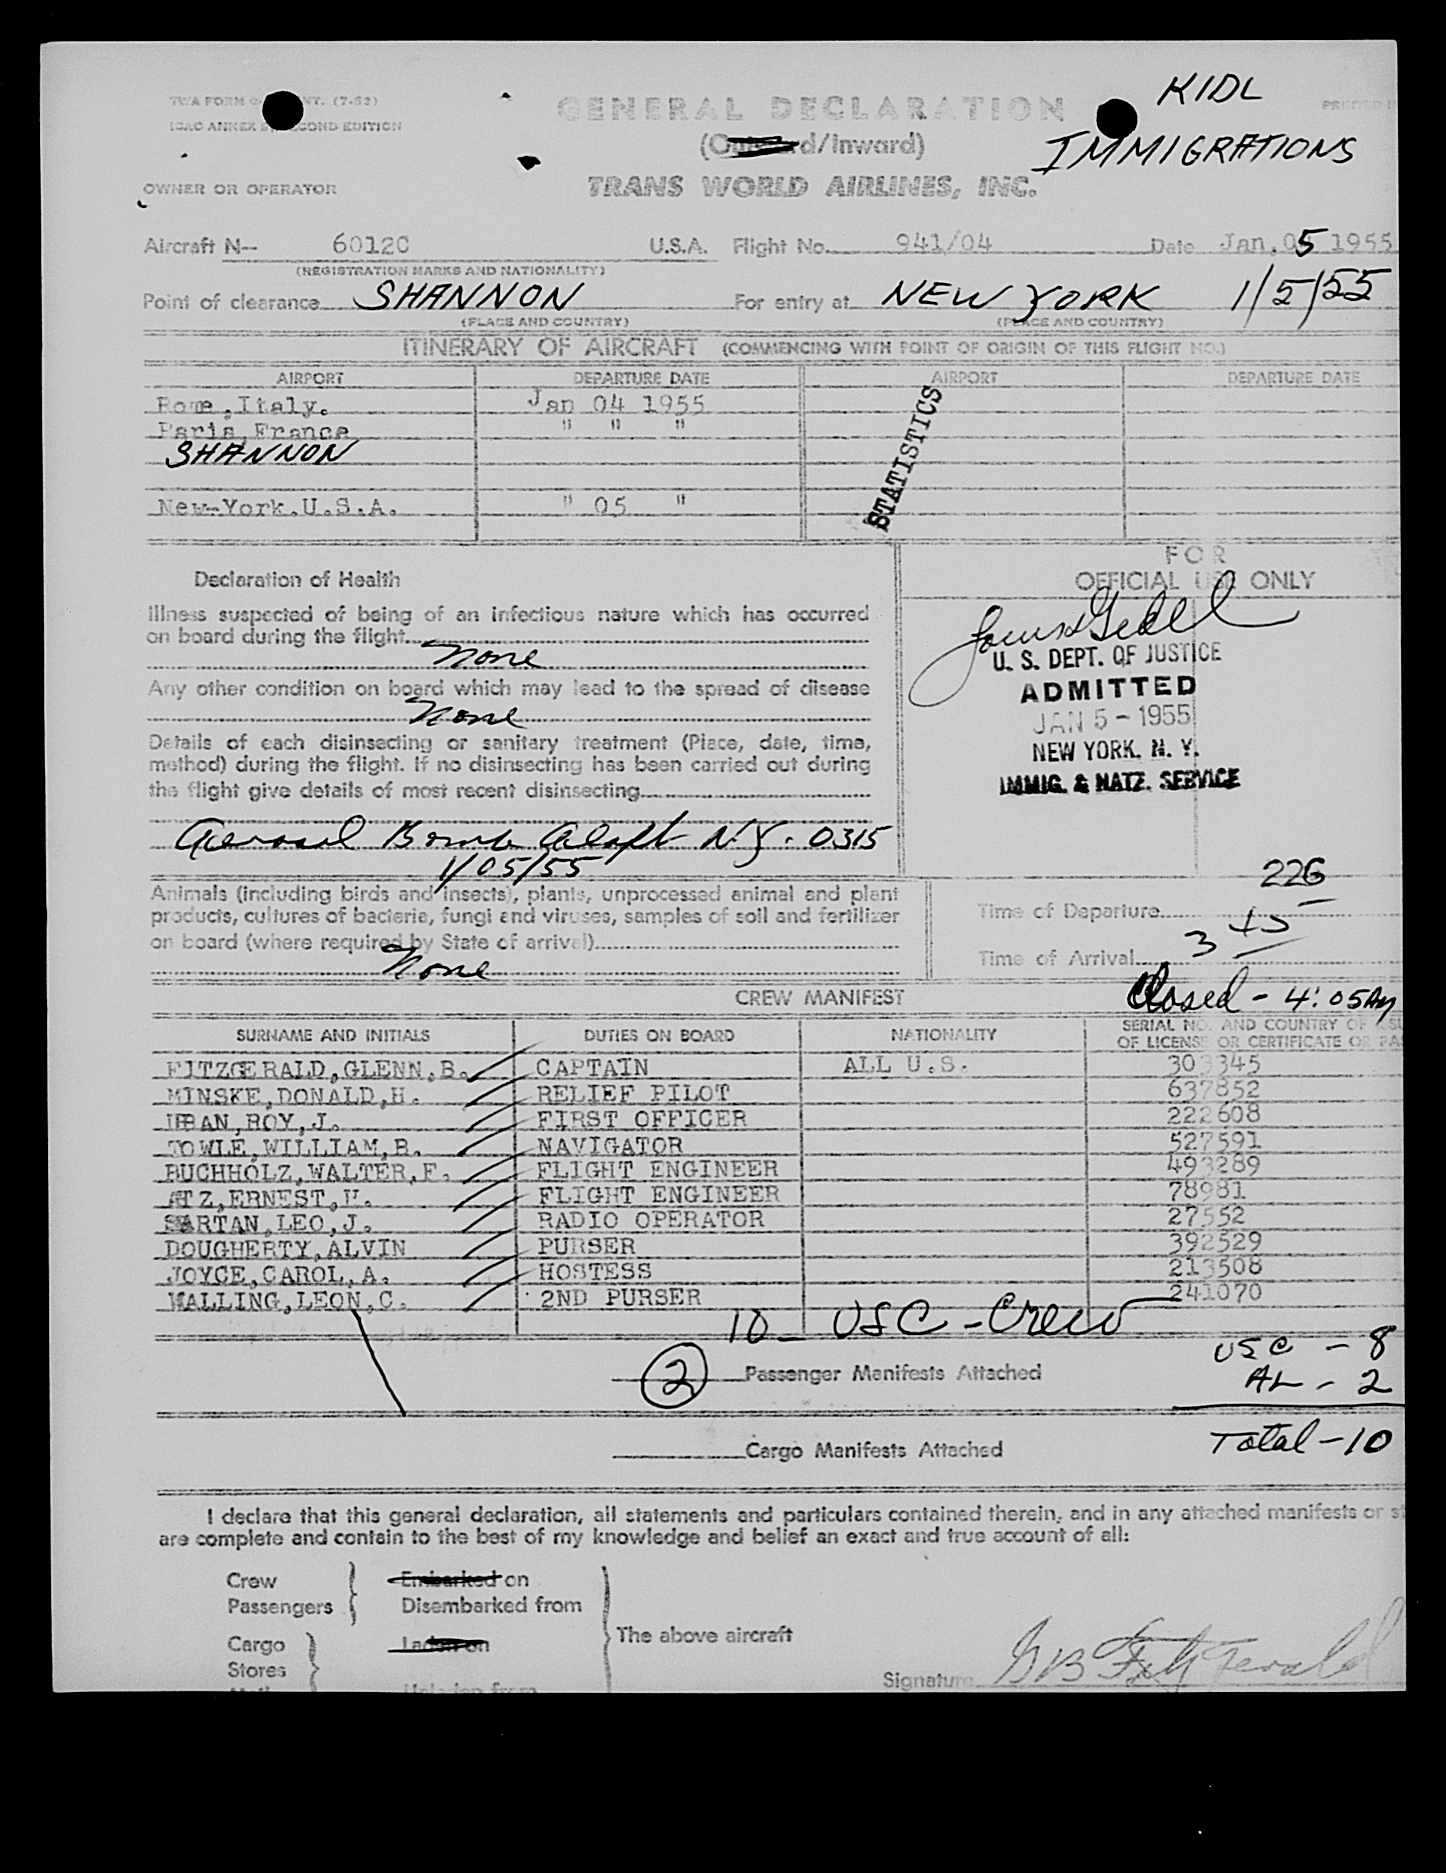 KIDL
TWA FORM NT. (7-52)
GENERAL DECLARATION
ICAO ANNEX SECOND EDITION
(Outward/Inward)
IMMIGRATIONS
OWNER OR OPERATOR
TRANS WORLD AIRLINES, INC.
Aircraft N-- 6012C U.S.A. Flight No. 941/04 Date Jan. 05 1955
(REGISTRATION MARKS AND NATIONALITY)
Point of clearance SHANNON For entry at NEW YORK 1/5/55
(PLACE AND COUNTRY) (PLACE AND COUNTRY)
ITINERARY OF AIRCRAFT (COMMENCING WITH POINT OF ORIGIN OF THIS FLIGHT NO.)
AIRPORT DEPARTURE DATE AIRPORT DEPARTURE DATE
Rome,Italy. Jan 04 1955
Paris,France " " "
SHANNON
New-York.U.S.A. " 05 "
STATISTICS
FOR
OFFICIAL USE ONLY
Declaration of Health
Illness suspected of being of an infectious nature which has occurred
on board during the flight
None
Any other condition on board which may lead to the spread of disease
None
Details of each disinsecting or sanitary treatment (Place, date, time,
method) during the flight. If no disinsecting has been carried out during
the flight give details of most recent disinsecting
Aerosol Bomb Aloft N.Y. 0315
1/05/55
U. S. DEPT. OF JUSTICE
ADMITTED
JAN 5 - 1955
NEW YORK, N. Y.
IMMIG. & NATZ. SERVICE
Animals (including birds and insects), plants, unprocessed animal and plant
products, cultures of bacteria, fungi and viruses, samples of soil and fertilizer
on board (where required by State of arrival)
None
226
Time of Departure
Time of Arrival 3 45
Closed - 4:05 AM
CREW MANIFEST
SURNAME AND INITIALS DUTIES ON BOARD NATIONALITY SERIAL NO. AND COUNTRY OF
OF LICENSE OR CERTIFICATE OR
FITZGERALD,GLENN,B. CAPTAIN ALL U.S. 303345
MINSKE,DONALD,H. RELIEF PILOT 637852
URBAN,ROY,J. FIRST OFFICER 222608
TOWLE,WILLIAM,R. NAVIGATOR 527591
BUCHHOLZ,WALTER,F. FLIGHT ENGINEER 493289
ATZ,ERNEST,H. FLIGHT ENGINEER 78981
SARTAN,LEO,J. RADIO OPERATOR 27552
DOUGHERTY,ALVIN PURSER 392529
JOYCE,CAROL,A. HOSTESS 213508
WALLING,LEON,C. 2ND PURSER 241070
10 - USC - Crew
USC - 8
2 Passenger Manifests Attached
AL - 2
Cargo Manifests Attached
Total - 10
I declare that this general declaration, all statements and particulars contained therein, and in any attached manifests or
are complete and contain to the best of my knowledge and belief an exact and true account of all:
Crew Embarked on
Passengers Disembarked from
The above aircraft
Cargo Laden on
Stores
Signature GB FitzGerald